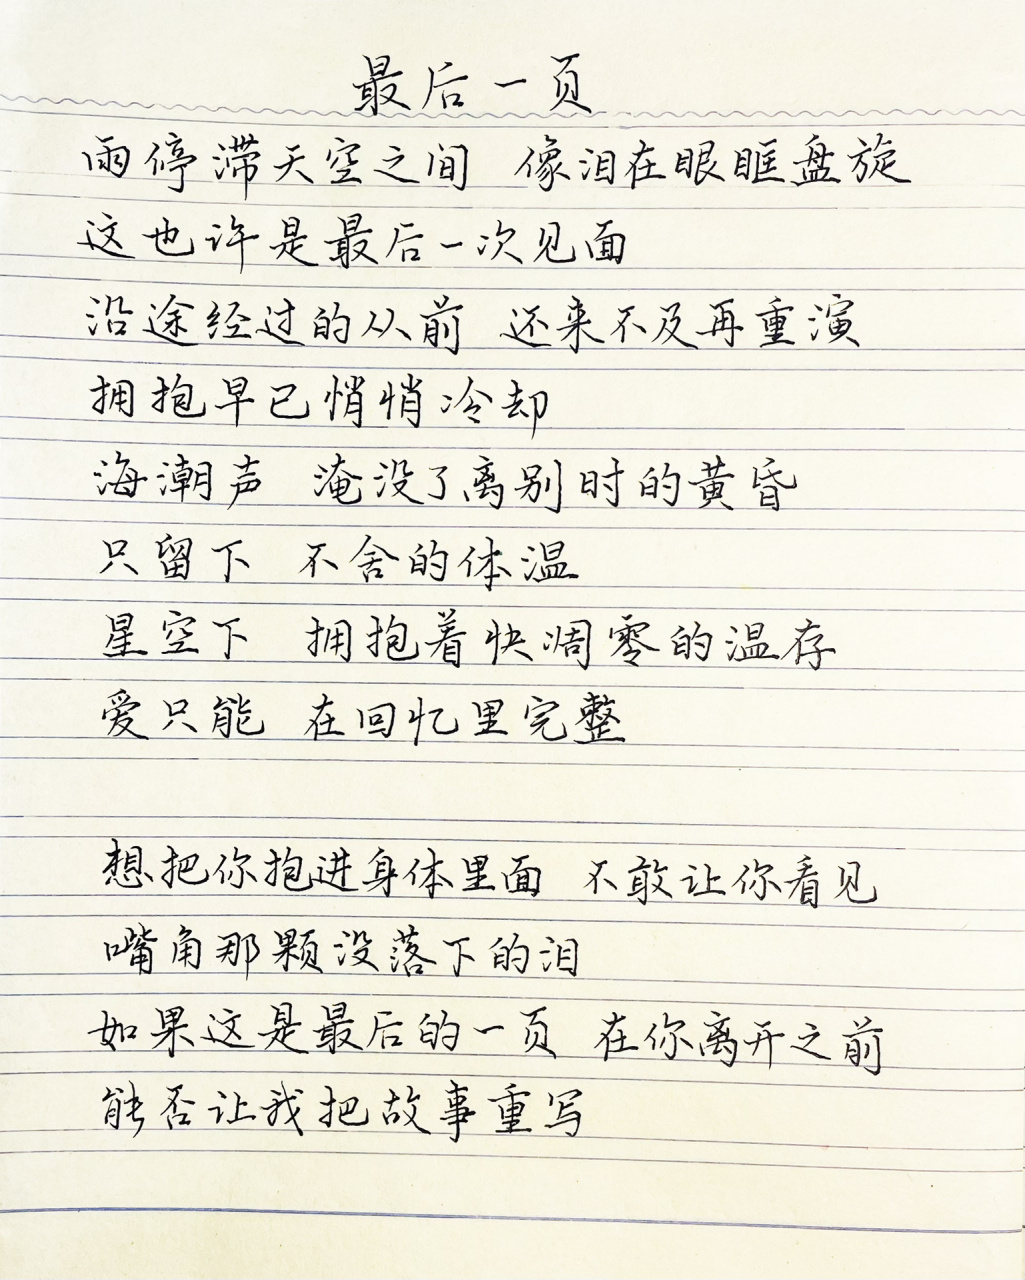 最后一页
雨停滞天空之间 像泪在眼眶盘旋
这也许是最后一次见面
沿途经过的从前 还来不及再重演
拥抱早已悄悄冷却
海潮声 淹没了离别时的黄昏
只留下 不舍的体温
星空下 拥抱着快凋零的温存
爱只能 在回忆里完整
想把你抱进身体里面 不敢让你看见
嘴角那颗没落下的泪
如果这是最后的一页 在你离开之前
能否让我把故事重写